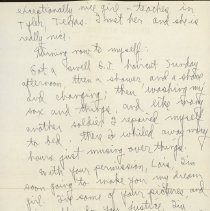 exceptionally nice girl - teacher in
Tyler, Texas. I met her and she is
really nice.
Turning now to myself:
Got a swell G.I. haircut Sunday
afternoon, then a shower and a shave
and changing; then washing my
sox and things, and like many
another soldier I repaired myself
to bed. There I whiled away many
hours just musing over things.
With your permission, Lois, I'm
soon going to make you my dream
girl. I've some of your pictures and